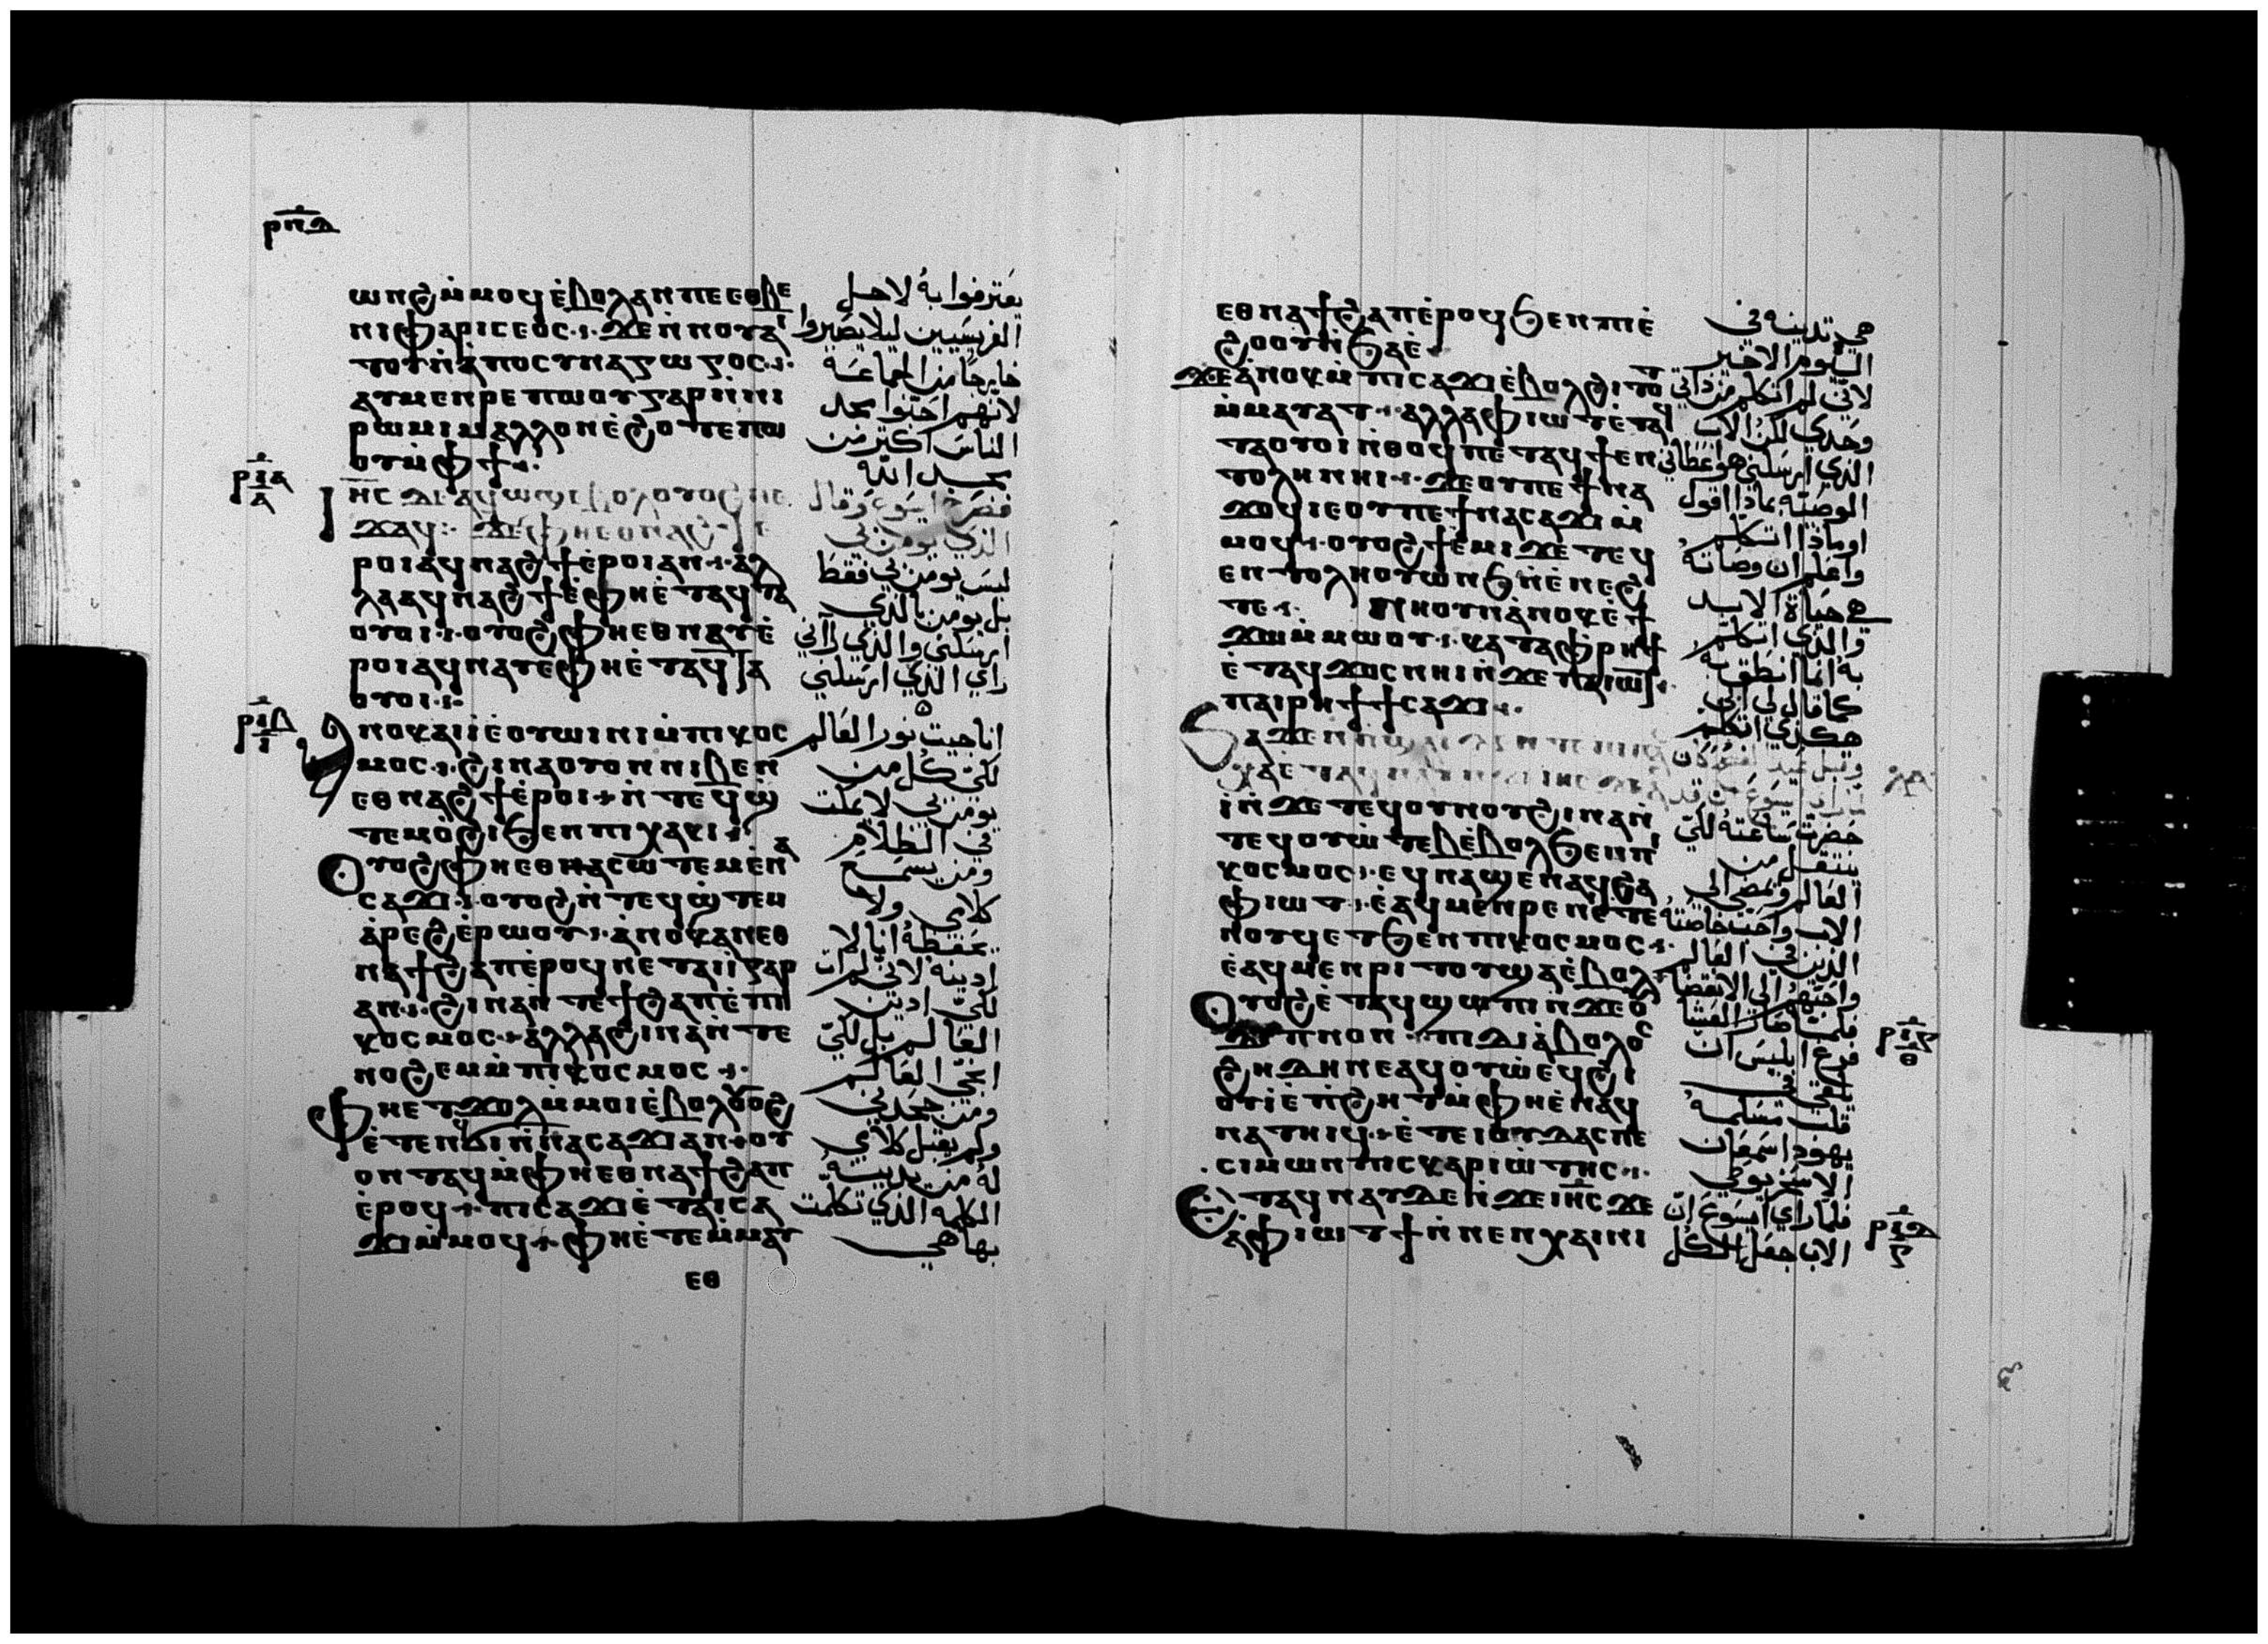 ⲣⲡⲇ
ⲱⲛϩ ⲙ̇ⲙⲟϥ ⲉ̇ⲃⲟⲗ ⲁⲛ ⲡⲉ ⲉⲑⲃⲉ
ⲛⲓⲫⲁⲣⲓⲥⲉⲟⲥ ϫⲉ ⲛ̇ⲛⲟⲩⲁⲓ
ⲧⲟⲩ ⲛ̇ⲁ̇ⲡⲟⲥⲩⲛⲁⲅⲱⲅⲟⲥ
ⲁⲩⲙⲉⲛⲣⲉ ⲡⲱⲟⲩ ⲅⲁⲣ ⲛ̇ⲛⲓ
ⲣⲱⲙⲓ ⲙⲁⲗⲗⲟⲛ ⲉ̇ϩⲟⲧⲉ ⲡⲱ
ⲟⲩ ⲙ̇ⲫϯ
ⲓⲏⲥ ⲇⲉ ⲁϥⲱϣ ⲉⲃⲟⲗ ⲟⲩⲟϩ ⲡⲉ
ϫⲁϥ ϫⲉ ⲫⲏ ⲉⲑⲛⲁϩϯ ⲉ
ⲣⲟⲓ ⲁϥⲛⲁϩϯ ⲉ̇ⲣⲟⲓ ⲁⲛ ⲁⲗ
ⲗⲁ ⲁϥⲛⲁϩϯ ⲉ̇ⲫⲏ ⲉ̇ⲧⲁϥⲧⲁ
ⲟⲩⲟⲓ ⲟⲩⲟϩ ⲫⲏ ⲉⲑⲛⲁⲩ ⲉ̇
ⲣⲟⲓ ⲁϥⲛⲁⲩ ⲉⲫⲏ ⲉ̇ⲧⲁϥⲧⲁ
ⲟⲩⲟⲓ
ⲁⲛⲟⲕ ⲁⲓⲓ̇ ⲉⲟⲩⲱⲓⲛⲓ ⲙ̇ⲡⲓⲕⲟⲥ
ⲙⲟⲥ ϩⲓⲛⲁ ⲟⲩⲟⲛ ⲛⲓⲃⲉⲛ
ⲉⲑⲛⲁϩϯ ⲉ̇ⲣⲟⲓ ⲛ̇ⲧⲉϥϣ̇
ⲧⲉⲙⲟ̇ϩⲓ ϧⲉⲛ ⲡⲓⲭⲁⲕⲓ
ⲟⲩⲟϩ ⲫⲏ ⲉⲑⲛⲁⲥⲱⲧⲉⲙ ⲉ̇ⲛⲁ
ⲥⲁϫⲓ ⲟⲩⲟϩ ⲛ̇ⲧⲉϥϣ̇ⲧⲉⲙ
ⲁ̇ⲣⲉϩ ⲉ̇ⲣⲱⲟⲩ ⲁ̇ⲛⲟⲕ ⲁⲛ ⲉⲑ
ⲛⲁϯϩⲁⲡ ⲉ̇ⲣⲟϥ ⲛⲉⲧⲁⲓⲓ̇ ⲅⲁⲣ
ⲁⲛ ϩⲓⲛⲁ ⲛ̇ⲧⲉϯϩⲁⲡ ⲉ̇ⲡⲓ
ⲕⲟⲥⲙⲟⲥ ⲁⲗⲗⲁ ϩⲓⲛⲁ ⲛ̇ⲧⲉ
ⲛⲟϩⲉⲙ ⲙ̇ⲡⲓⲕⲟⲥⲙⲟⲥ
ⲫⲏ ⲉⲧϫⲱⲗ ⲙ̇ⲙⲟⲓ ⲉ̇ⲃⲟⲗ ⲟⲩⲟϩ
ⲉ̇ⲧⲉⲛϥϭⲓ ⲛ̇ⲛⲁⲥⲁϫⲓ ⲁⲛ ⲟⲩ
ⲟⲛⲧⲁϥ ⲙ̇ⲫⲏ ⲉⲑⲛⲁϯϩⲁⲡ
ⲉ̇ⲣⲟϥ ⲡⲓⲥⲁϫⲓ ⲉ̇ⲧⲁⲓⲥⲁ
ϫⲓ ⲙ̇ⲙⲟϥ ⲫⲏ ⲉ̇ⲧⲉⲙ̇ⲙⲁⲩ
ⲉⲑ
يعترفوا به لاجل
الفريسيين ليلا يصيروا
خارجًا من الجماعة
لانهم احبوا مجد
الناس اكثر من
مجد الله
فصرخ ايسوع وقال
الذي يومن بي
ليس يومن بي فقط
بل يومن بالذي
ارسلني والذي راني
راي الذي ارسلني
انا جيت نور العالم
لكي كل من
يومن بي لا يمكث
في الظلام
ومن يسمع
كلامي ولا
يحفظه انا لا
ادينه لاني لم ات
لكي ادين
العالم بل لكي
احيي العالم
ومن جحدني
ولم يقبل كلامي
له من يدينه
الكلمه الذي تكلمت
بها هي
ⲉⲑⲛⲁϯϩⲁⲡ ⲉ̇ⲣⲟϥ ϧⲉⲛ ⲡⲓⲉ̇
ϩⲟⲟⲩ ⲛ̇ϧⲁⲉ̇
ϫⲉ ⲁ̇ⲛⲟⲕ ⲙ̇ⲡⲓⲥⲁϫⲓ ⲉ̇ⲃⲟⲗ ϩⲓⲧⲟⲧ
ⲙ̇ⲙⲁⲩⲁⲧ ⲁⲗⲗⲁ ⲫⲓⲱⲧ ⲉ̇ⲧⲁϥ
ⲧⲁⲟⲩⲟⲓ ⲛ̇ⲑⲟϥ ⲡⲉⲧⲁϥϯ ⲉⲛ
ⲧⲟⲗⲏ ⲛⲏⲓ ϫⲉ ⲟⲩ ⲡⲉϯⲛⲁ
ϫⲟϥ ⲓⲉ ⲟⲩ ⲡⲉϯⲛⲁⲥⲁϫⲓ ⲙ̇
ⲙⲟϥ ⲟⲩⲟϩ ϯⲉⲙⲓ ϫⲉ ⲧⲉϥ
ⲉⲛⲧⲟⲗⲏ ⲟⲩⲱⲛϧ ⲛ̇ⲉ̇ⲛⲉϩ
ⲧⲉ ⲛⲏ ⲟⲩⲛ ⲁ̇ⲛⲟⲕ ⲉ̇ϯ
ϫⲱ ⲙ̇ⲙⲱⲟⲩ ⲕⲁⲧⲁ ⲫⲣⲏϯ
ⲉ̇ⲧⲁϥϫⲟⲥ ⲛⲏⲓ ⲛ̇ϫⲉ ⲡⲁⲓⲱⲧ
ⲡⲁⲓⲣⲏϯ ϯⲥⲁϫⲓ
ϧⲁϫⲉⲛ
ϫⲉ ⲉ̇ⲧⲁϥ ⲓⲏⲥ
ⲓ̇ ⲛ̇ϫⲉ ⲧⲉϥⲟⲩⲛⲟⲩ ϩⲓⲛⲁ ⲛ̇
ⲧⲉϥⲟⲩⲱ̇ⲧⲉⲃ ⲉ̇ⲃⲟⲗ ϧⲉⲛ ⲡⲓ
ⲕⲟⲥⲙⲟⲥ ⲉϥⲛⲁϣⲉⲛⲁϥ ϩⲁ
ⲫⲓⲱⲧ ⲉ̇ⲁϥⲙⲉⲛⲣⲉ ⲛⲉⲧⲉ
ⲛⲟⲩϥ ⲉⲧϧⲉⲛ ⲡⲓⲕⲟⲥⲙⲟⲥ
ⲉ̇ⲁϥⲙⲉⲛⲣⲓⲧⲟⲩ ϣⲁ ⲉ̇ⲃⲟⲗ
ⲟⲩⲟϩ ⲉ̇ⲧⲁϥϣⲱⲡⲓ ⲛ̇ϫⲉ ⲟⲩ
ⲇⲓⲡⲛⲟⲛ ⲡⲓⲇⲓⲁ̇ⲃⲟⲗⲟⲥ
ϩⲏⲇⲏ ⲛⲉⲁϥⲟⲩⲱ ⲉϥϩⲓ
ⲟⲩⲓ̇ ⲉ̇ⲡϩⲏⲧ ⲙ̇ⲫⲏ ⲉ̇ⲛⲁϥ
ⲛⲁⲧⲏⲓϥ ⲉ̇ⲧⲉ ⲓⲟⲩⲇⲁⲥ ⲡⲉ
ⲥⲓⲙⲱⲛ ⲡⲓⲥⲕⲁⲣⲓⲱ̇ⲧⲏⲥ
ⲉ̇ⲧⲁϥⲛⲁⲩ ⲇⲉ ⲛ̇ϫⲉ ⲓⲏⲥ ϫⲉ
ⲁ̇ ⲫⲓⲱⲧ ϯ ⲛ̇ⲛⲉⲛⲭⲁⲓ ⲛⲓ
هي تدينه في
اليوم الاخير
لاني لم اتكلم من ذاتي
وحدي لكن الاب
الذي ارسلني هو اعطاني
الوصيّه بماذا اقول
او ماذا اتكلم
واعلم ان وصاته
هي حياة الابد
والذي اتكلم
به انا انطق به
كما قال لي ابي
هكذي اتكلم
حضرت ساعته لكي
ينتقل من
العالم ويمضي الي
الاب واحب خاصته
الذين في العالم
واحبهم الي الانقضا
فلما صار العشا
فرغ ابليس ان
يلقي في
قلب مسلمه
يهودا سمعان
الاسخريوطي
فلما راي ايسوع ان
الاب جعل الكل